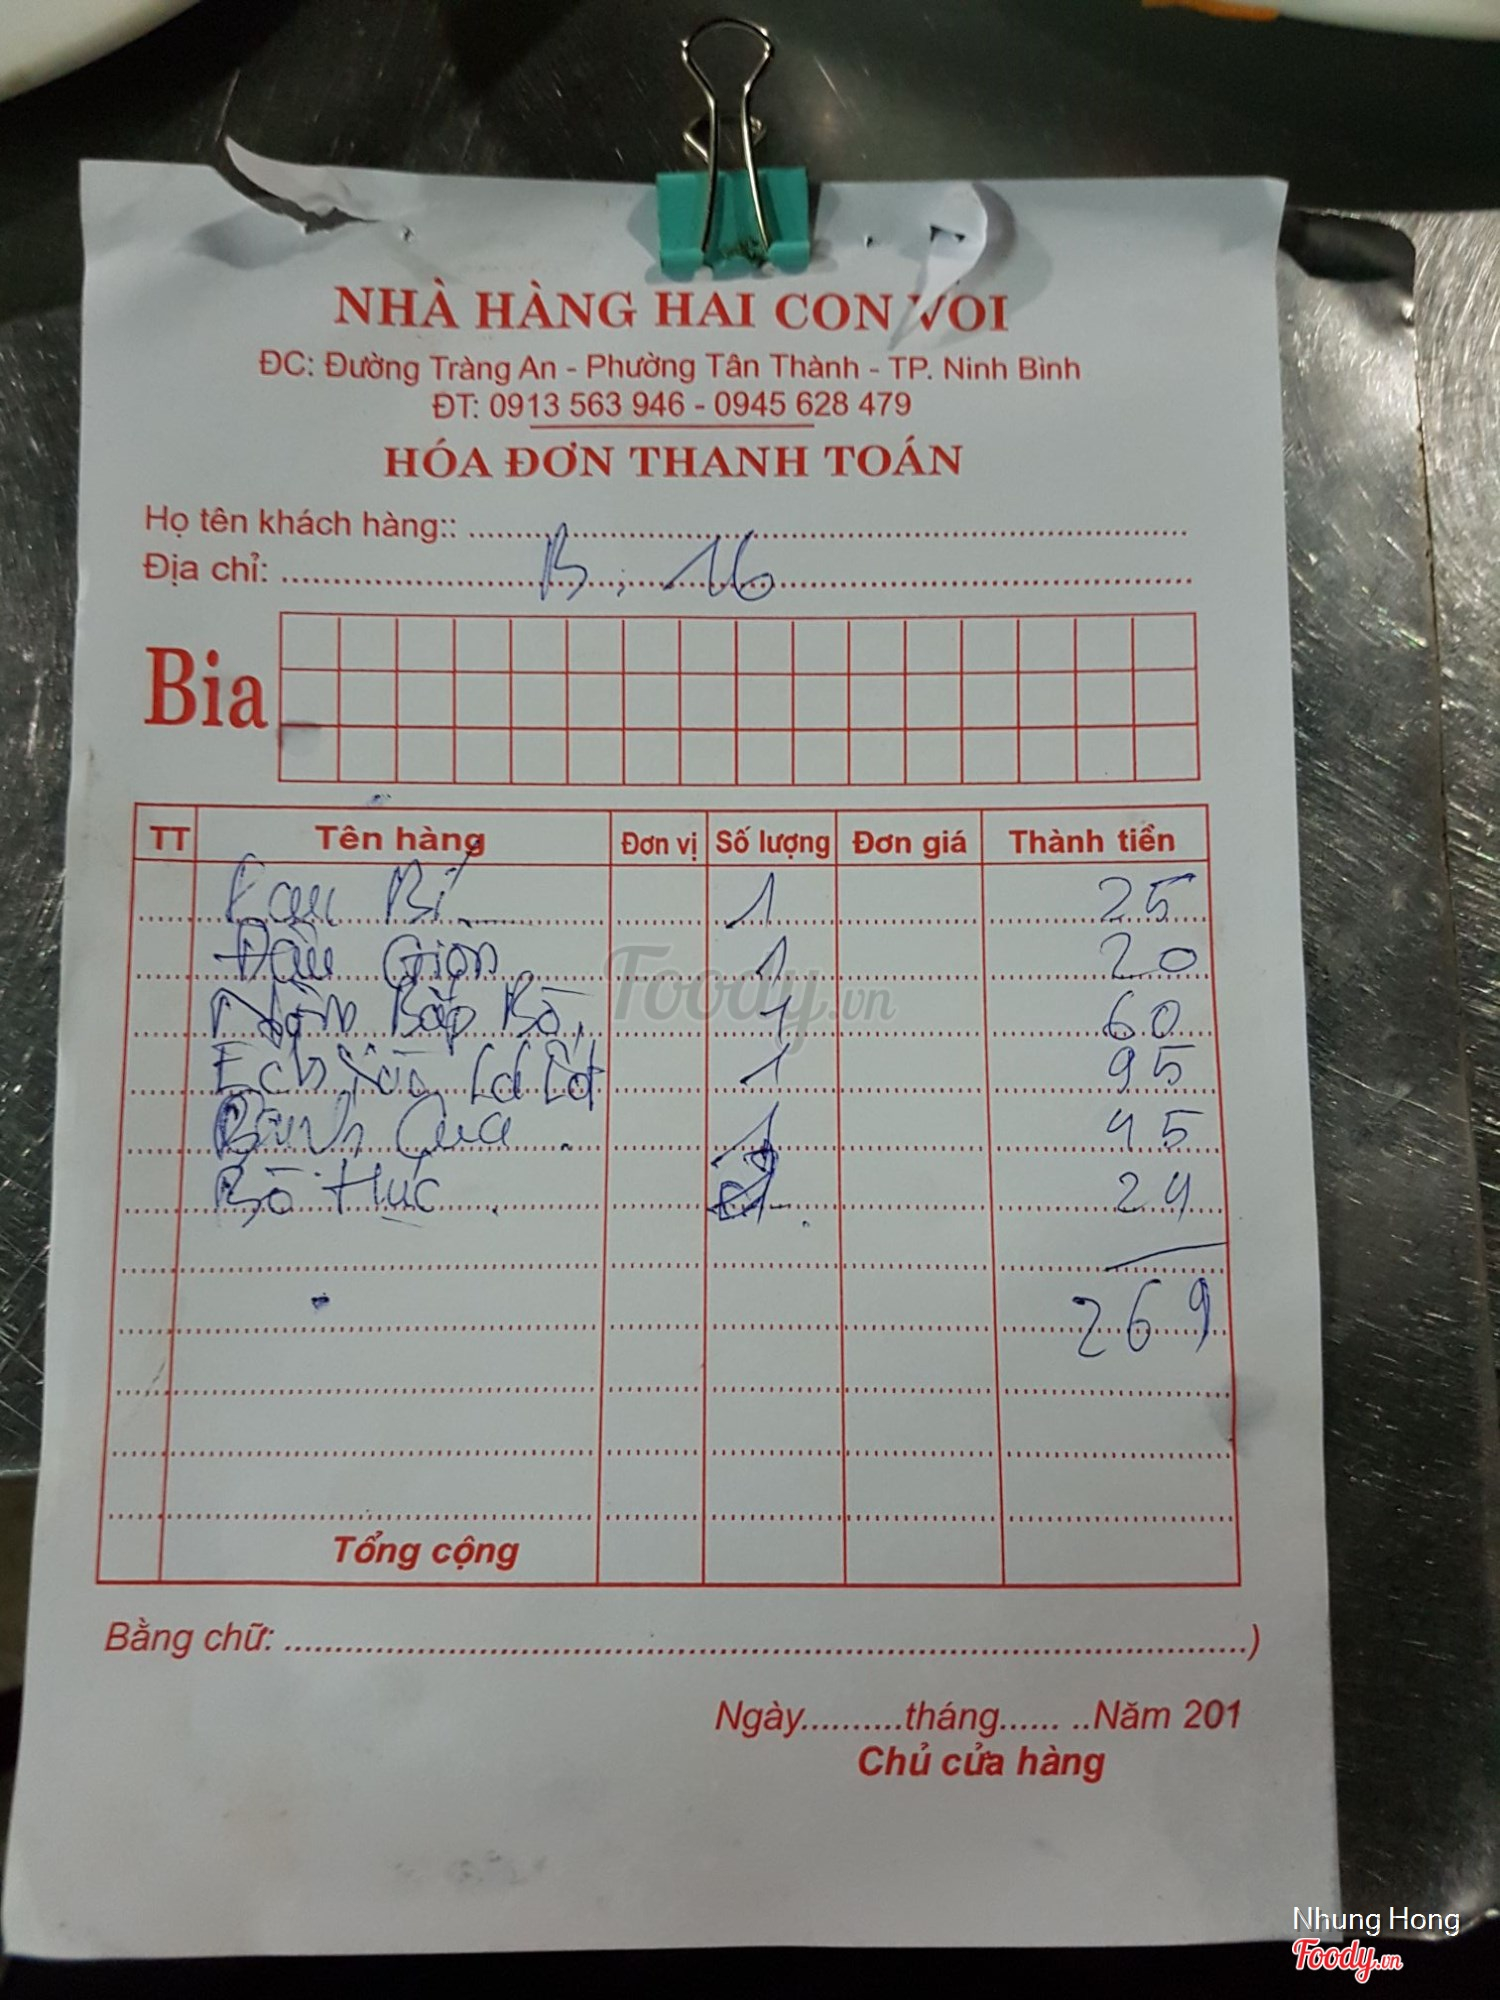 NHÀ HÀNG HAI CON VOI
ĐC: Đường Tràng An - Phường Tân Thành - TP. Ninh Bình
ĐT: 0913 563 946 - 0945 628 479
HÓA ĐƠN THANH TOÁN
Họ tên khách hàng::
Địa chỉ: B. 16
Bia
TT Tên hàng Đơn vị Số lượng Đơn giá Thành tiền
Bí 1 25
Đậu Giòn 1 20
Nộm Bắp Bò, 1 60
Ếch Lá Lốt 1 95
Bánh Qua 1 45
Bò Húc 24
269
Tổng cộng
Bằng chữ: )
Ngày..........tháng...... ..Năm 201
Chủ cửa hàng
Foody.vn
Nhung Hong
Foody.vn